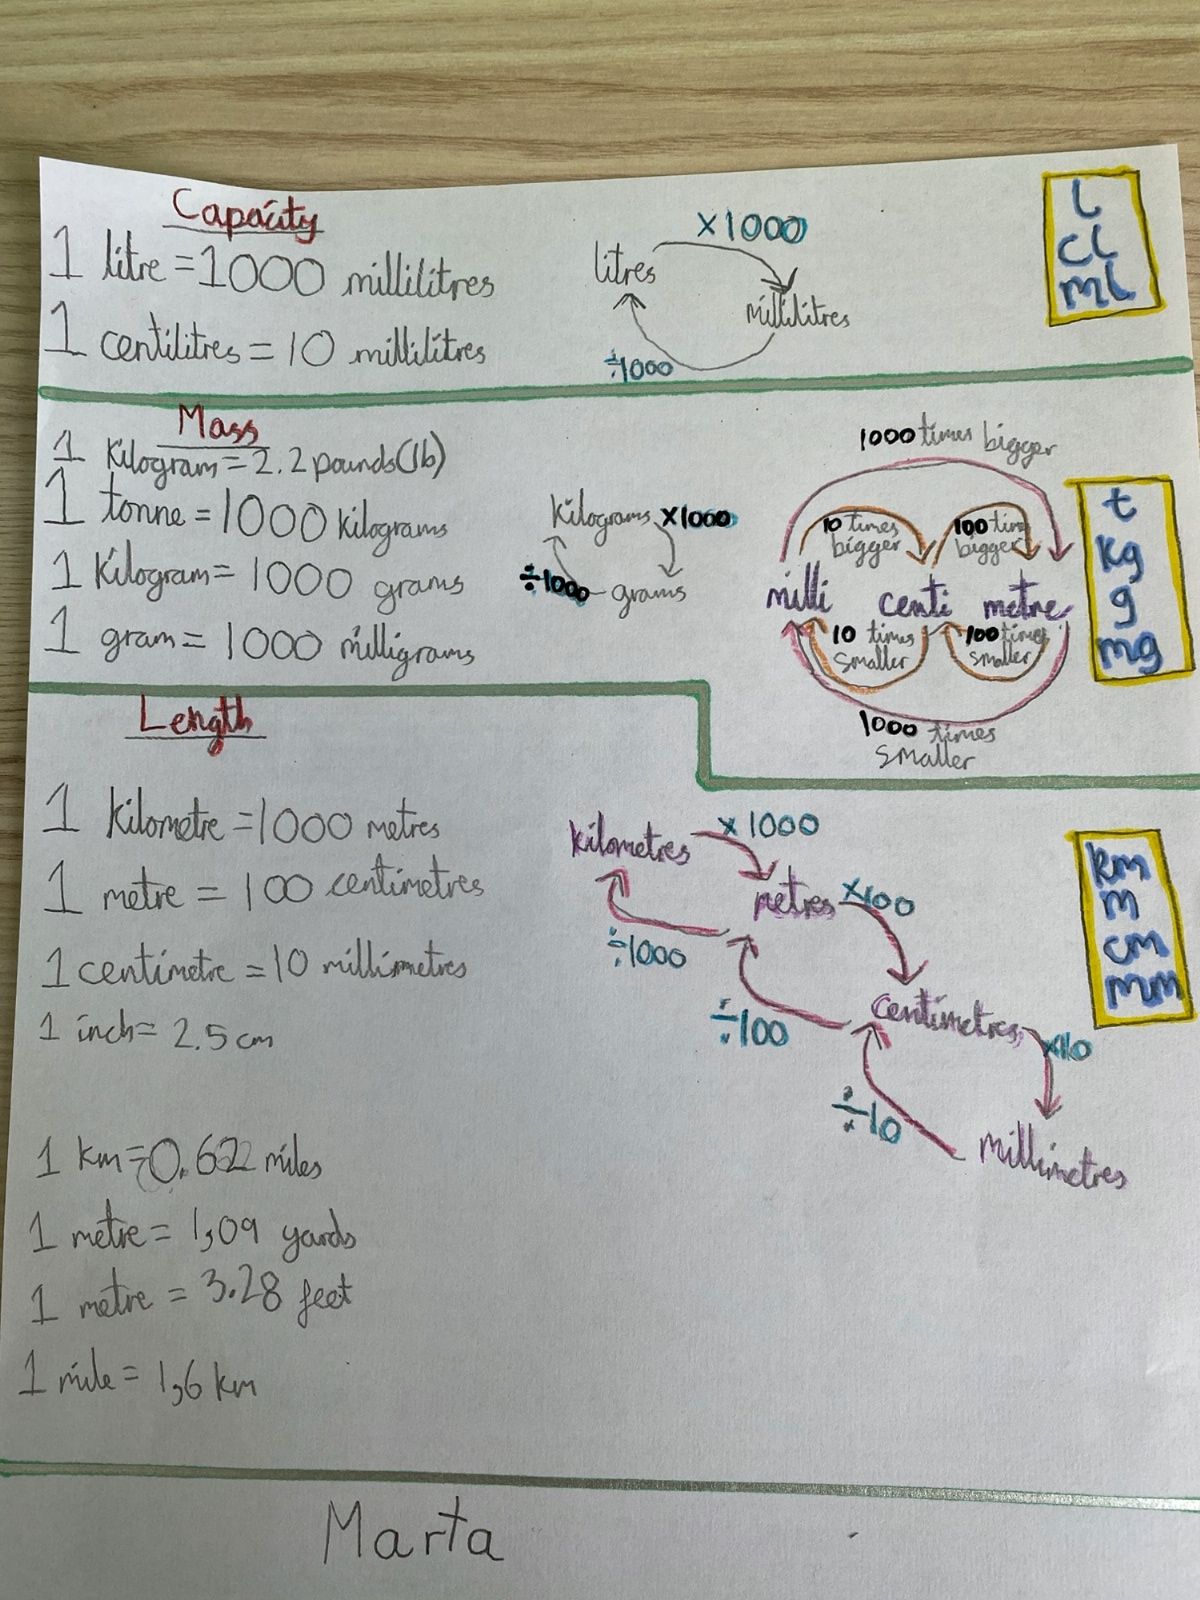 Capacity
1 litre = 1000 millilitres
1 centilitres = 10 millilitres
×1000
litres
millilitres
÷1000
l
cl
ml
Mass
1 kilogram = 2.2 pounds (lb)
1 tonne = 1000 kilograms
1 kilogram = 1000 grams
1 gram = 1000 milligrams
kilograms ×1000
÷1000 grams
1000 times bigger
10 times bigger
100 times bigger
milli centi metre
10 times smaller
100 times smaller
1000 times smaller
t
kg
g
mg
Length
1 kilometre = 1000 metres
1 metre = 100 centimetres
1 centimetre = 10 millimetres
1 inch = 2.5 cm
1 km = 0.622 miles
1 metre = 1,09 yards
1 metre = 3.28 feet
1 mile = 1,6 km
kilometres ×1000
metres ×100
÷1000
centimetres ×10
÷100
÷10
millimetres
km
m
cm
mm
Marta